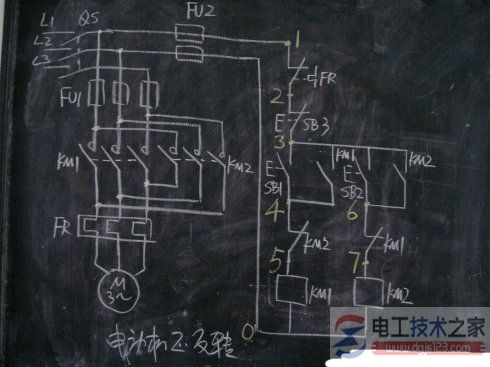 L1 QS
FU2
L2
L3
1
FR
2
FU1
E SB3
3
KM1 KM2
KM1
KM2
E SB1
E SB2
4
6
FR
KM2
KM1
5
7
M
3~
KM1
KM2
0
电动机正反转
电工技术之家
www.dgjs123.com